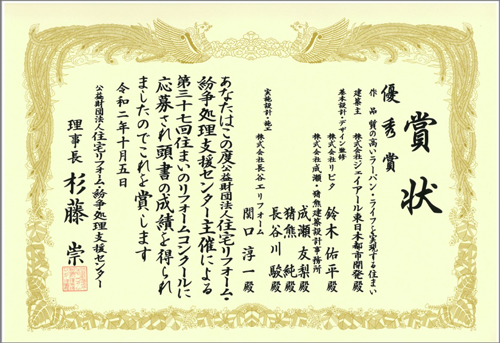 賞状
優秀賞
作品 質の高いアーバン・ライフを実現する住まい
建築主 株式会社ジェイアール東日本都市開発殿
基本設計・デザイン監修 株式会社リビタ 鈴木佑平殿
株式会社成瀬・猪熊建築設計事務所
成瀬友梨殿
猪熊純殿
実施設計・施工 株式会社長谷工リフォーム 長谷川駿殿
関口淳一殿
あなたはこの度公益財団法人住宅リフォーム・
紛争処理支援センター主催による
第三十七回住まいのリフォームコンクールに
応募され頭書の成績を得られ
ましたのでこれを賞します
令和二年十月五日
公益財団法人住宅リフォーム・紛争処理支援センター
理事長 杉藤崇